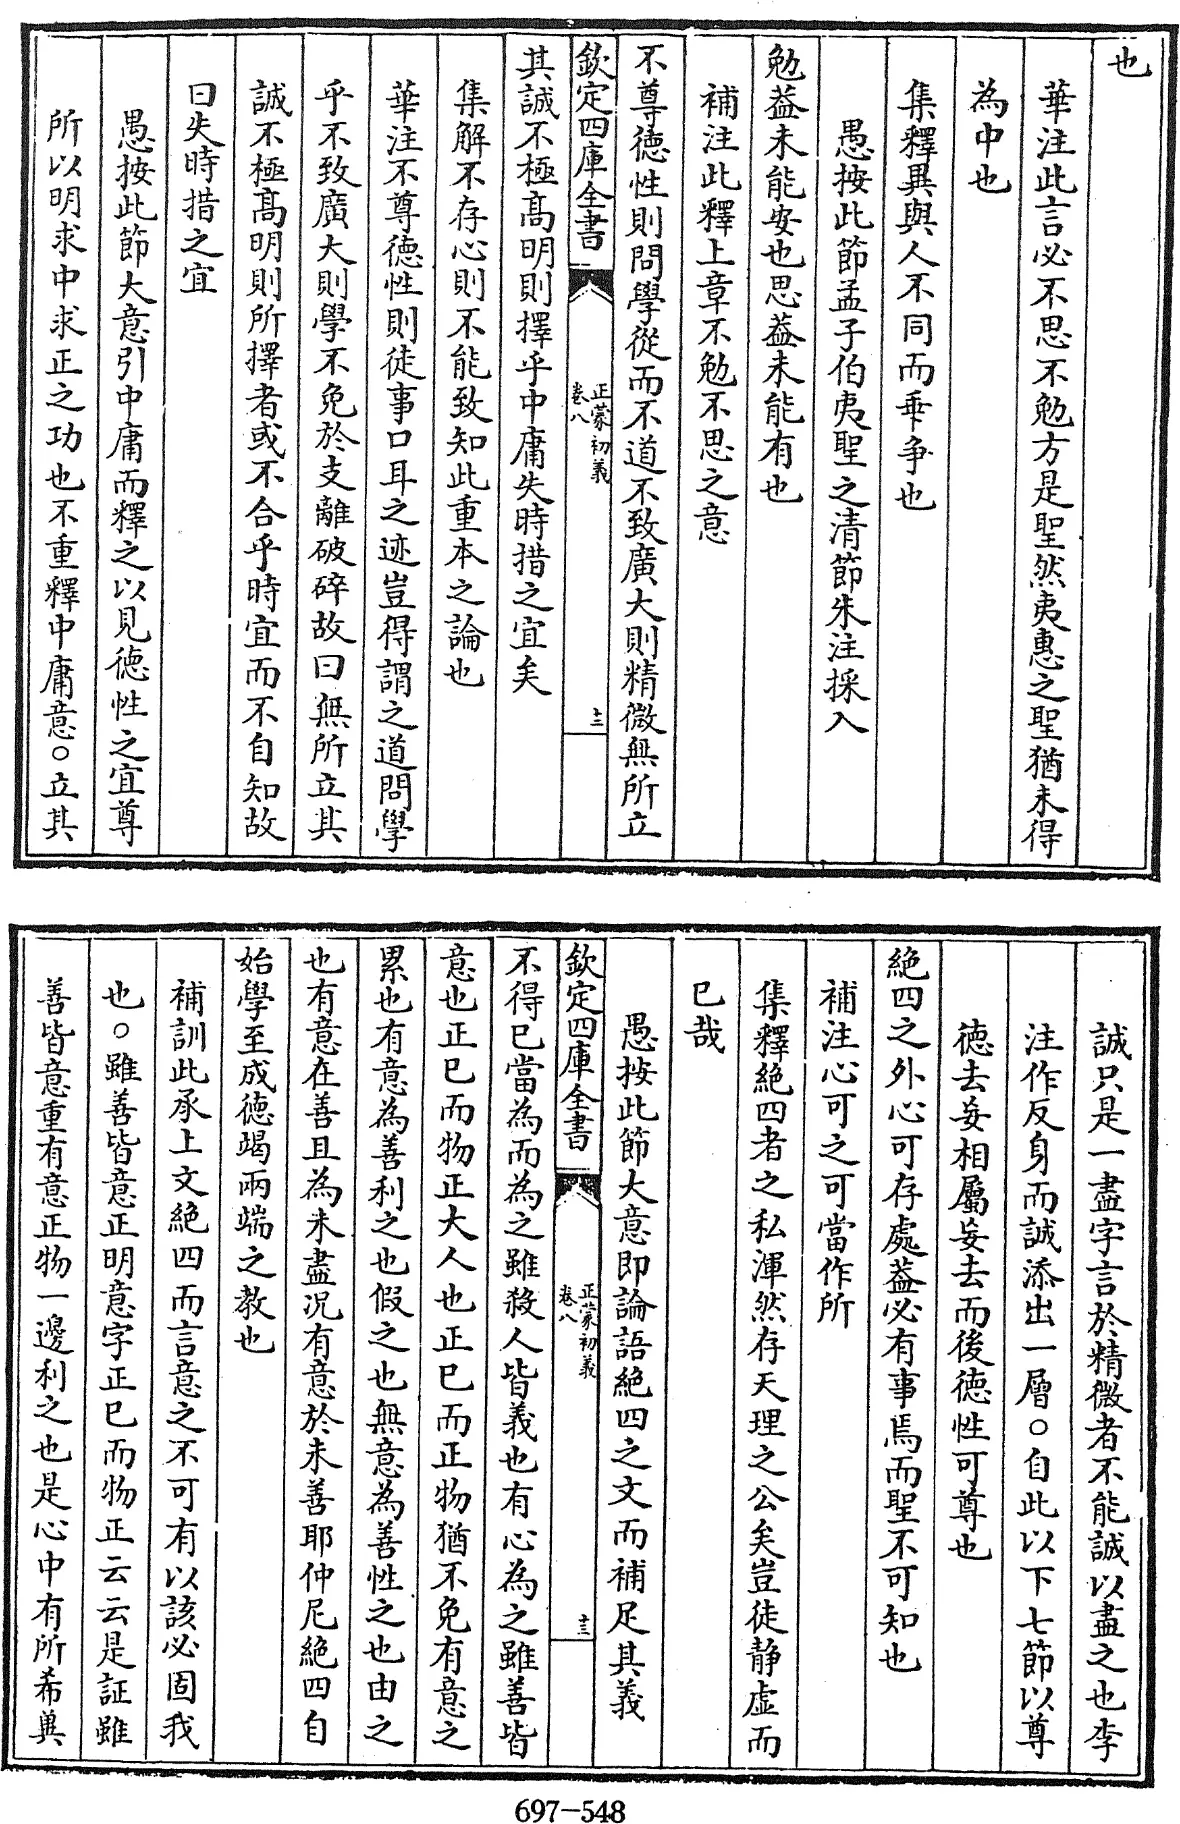 也
華注此言必不思不勉方是聖然夷惠之聖猶未得
為中也
集釋異與人不同而乖争也
愚按此節孟子伯夷聖之清節朱注採入
勉葢未能安也思葢未能有也
補注此釋上章不勉不思之意
不尊徳性則問學從而不道不致廣大則精微無所立
欽定四庫全書
正蒙初義
卷八
十二
其誠不極髙明則擇乎中庸失時措之宜矣
集解不存心則不能致知此重本之論也
華注不尊徳性則徒事口耳之迹豈得謂之道問學
乎不致廣大則學不免於支離破碎故曰無所立其
誠不極髙明則所擇者或不合乎時宜而不自知故
曰失時措之宜
愚按此節大意引中庸而釋之以見徳性之宜尊
所以明求中求正之功也不重釋中庸意○立其
誠只是一盡字言於精微者不能誠以盡之也李
注作反身而誠添出一層○自此以下七節以尊
徳去妄相屬妄去而後徳性可尊也
絶四之外心可存處葢必有事焉而聖不可知也
補注心可之可當作所
集釋絶四者之私渾然存天理之公矣豈徒静虚而
已哉
愚按此節大意即論語絶四之文而補足其義
欽定四庫全書
正蒙初義
卷八
十三
不得已當為而為之雖殺人皆義也有心為之雖善皆
意也正已而物正大人也正已而正物猶不免有意之
累也有意為善利之也假之也無意為善性之也由之
也有意在善且為未盡况有意於未善耶仲尼絶四自
始學至成徳竭兩端之教也
補訓此承上文絶四而言意之不可有以該必固我
也○雖善皆意正明意字正已而物正云云是証雖
善皆意重有意正物一邊利之也是心中有所希兾
697-548